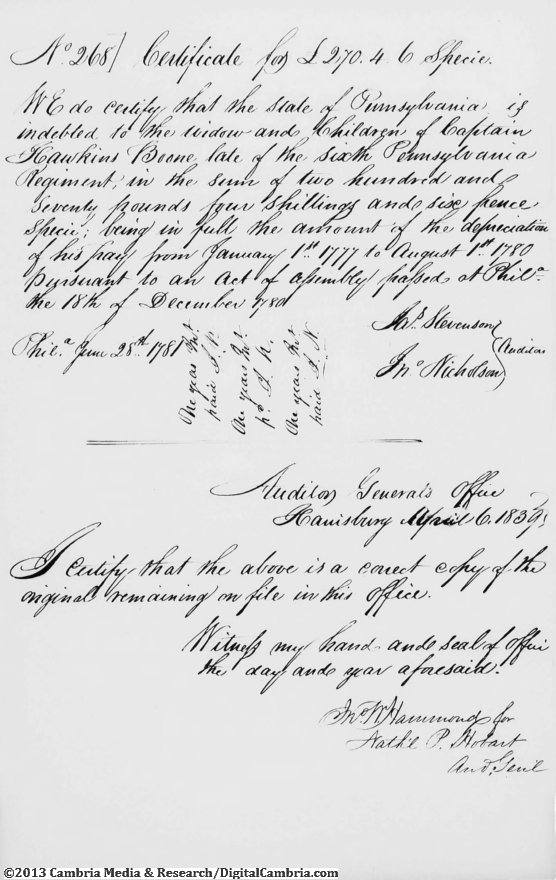 No. 268/ Certificate for £270.4.6 Specie.
WE do certify that the state of Pennsylvania is
indebted to the widow and Children of Captain
Hawkins Boone late of the sixth Pennsylvania
Regiment, in the sum of two hundred and
seventy pounds four shillings and six pence
Specie; being in full the amount of the depreciation
of his pay from January 1st. 1777 to August 1st. 1780
pursuant to an act of assembly passed at Phila.
the 18th of December 1780
Jas. Stevenson
Auditors
Jno. Nicholson
Phila. June 28th. 1781
One years Int.
paid J. N.
One years Int
pd. J. N.
One years Int
paid J. N.
Auditor General's Office
Harrisburg April 6. 1839
I certify that the above is a correct copy of the
original remaining on file in this office.
Witness my hand and seal of office
the day and year aforesaid.
Jno. W. Hammond for
Nathl. P. Hobart
Aud. Genl
©2013 Cambria Media & Research/DigitalCambria.com